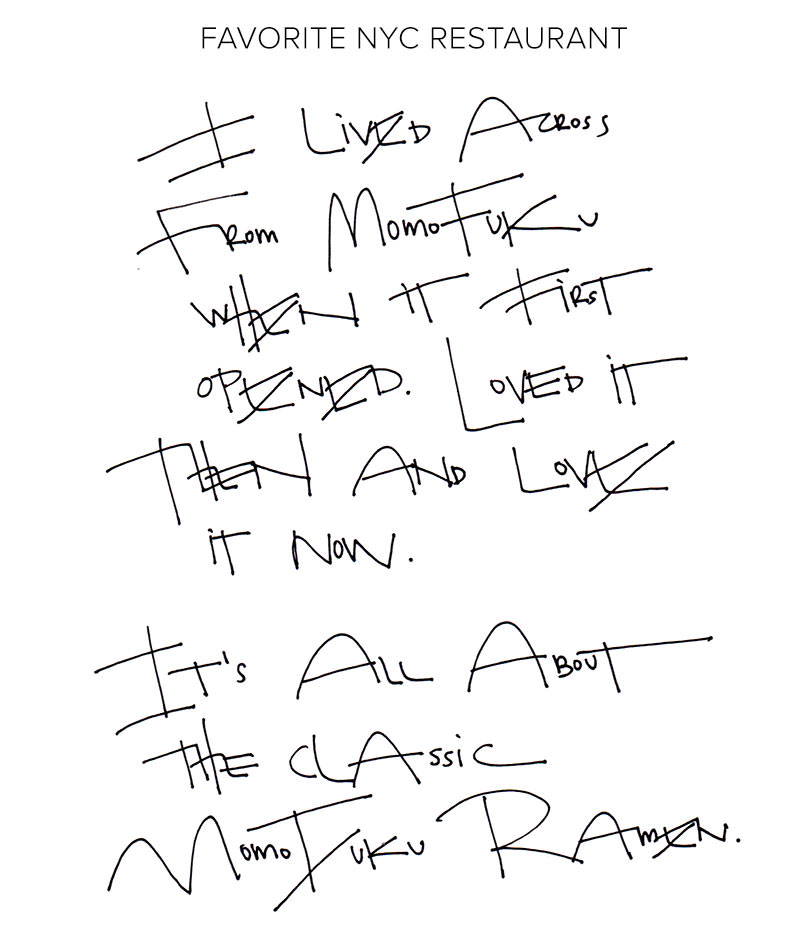 FAVORITE NYC RESTAURANT
I LIVED ACROSS
FROM MOMOFUKU
WHEN IT FIRST
OPENED. LOVED IT
THEN AND LOVE
IT NOW.
IT'S ALL ABOUT
THE CLASSIC
MOMOFUKU RAMEN.